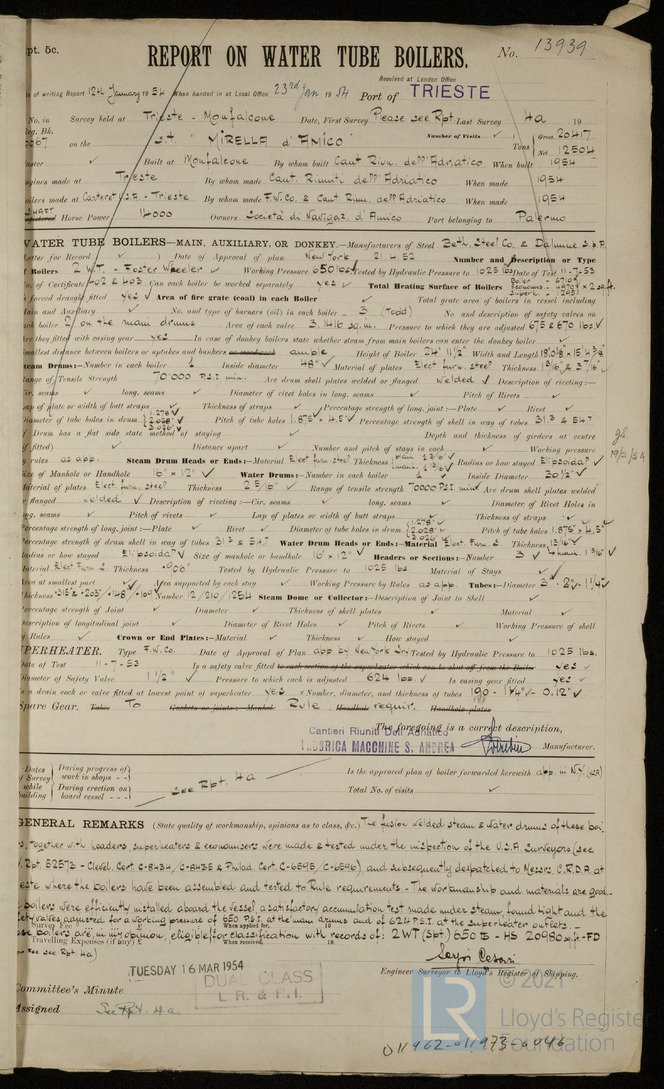 pt. 5c.
REPORT ON WATER TUBE BOILERS.
No. 13939
Received at London Office
of writing Report 12th January 1954 When handed in at Local Office 23rd Jan 1954 Port of TRIESTE
No. in Survey held at Trieste - Monfalcone Date, First Survey Please see Rpt. Last Survey 4a 19
Reg. Bk.
on the s.t. "MIRELLA d'AMICO" Number of Visits Tons Gross 20417 Net 12504
Built at Monfalcone By whom built Cant. Riun. dell'Adriatico. When built 1954
Engines made at Trieste By whom made Cant. Riuniti dell'Adriatico When made 1954
Boilers made at Carteret U.S.A. - Trieste By whom made F.W.Co. & Cant. Riun. dell'Adriatico When made 1954
Horse Power 14000 Owners Società di Navigaz. d'Amico Port belonging to Palermo
WATER TUBE BOILERS—MAIN, AUXILIARY, OR DONKEY.—Manufacturers of Steel Beth. Steel Co. & Dalmine S.p.A.
Letter for Record Date of Approval of plan New York 21.4.52 Number and Description or Type
of Boilers 2 W.T. - Foster Wheeler Working Pressure 650 lbs Tested by Hydraulic Pressure to 1025 lbs Date of Test 11-7-53
No. of Certificate 402 & 403 Can each boiler be worked separately yes Total Heating Surface of Boilers
Is forced draught fitted yes Area of fire grate (coal) in each Boiler Total grate area of boilers in vessel including
Main and Auxiliary No. and type of burners (oil) in each boiler 3 (Todd) No. and description of safety valves on
each boiler 2 on the main drums Area of each valve 3.416 sq.in. Pressure to which they are adjusted 675 & 670 lbs
Are they fitted with easing gear yes In case of donkey boilers state whether steam from main boilers can enter the donkey boiler
Smallest distance between boilers or uptakes and bunkers or woodwork ample Height of Boiler 24' 11½" Width and Length
Steam Drums:—Number in each boiler 1 Inside diameter 48" Material of plates Elect. furn. steel Thickness
Range of Tensile Strength 70'000 P.S.I. min. Are drum shell plates welded or flanged welded Description of riveting:—
Cir. seams long. seams Diameter of rivet holes in long. seams Pitch of Rivets
Lap of plate or width of butt straps Thickness of straps Percentage strength of long. joint:—Plate Rivet
Diameter of tube holes in drum 1.278" 2.028" 3.026" Pitch of tube holes 1.875" x 4.5" Percentage strength of shell in way of tubes 31.3 & 54.7
If Drum has a flat side state method of staying Depth and thickness of girders at centre
(if fitted) Distance apart Number and pitch of stays in each Working pressure
by rules as app: Steam Drum Heads or Ends:—Material Elect. furn. steel Thickness Radius or how stayed Elipsoidal
Size of Manhole or Handhole 16" x 12" Water Drums:—Number in each boiler 1 Inside Diameter 30½"
Material of plates Elect. furn. steel Thickness 2 5/16" Range of tensile strength 70000 P.S.I. min Are drum shell plates welded
or flanged welded Description of riveting:—Cir. seams long. seams Diameter of Rivet Holes in
long. seams Pitch of rivets Lap of plates or width of butt straps Thickness of straps
Percentage strength of long. joint:—Plate Rivet Diameter of tube holes in drum 1.278" 2.028" 3.026" Pitch of tube holes 1.875" x 4.5"
Percentage strength of drum shell in way of tubes 31.3 & 54.7 Water Drum Heads or Ends:—Material Elect. Furn. S Thickness
Radius or how stayed Elipsoidal Size of manhole or handhole 16" x 12" Headers or Sections:—Number 3
Material Elect. Furn. S Thickness .906" Tested by Hydraulic Pressure to 1025 lbs. Material of Stays
Area at smallest part Area supported by each stay Working Pressure by Rules as app. Tubes:—Diameter 3" - 2" - 1¼"
Thickness Number 12/210/1254 Steam Dome or Collector:—Description of Joint to Shell
Percentage strength of Joint Diameter Thickness of shell plates Material
Description of longitudinal joint Diameter of Rivet Holes Pitch of Rivets Working Pressure of shell
by Rules Crown or End Plates:—Material Thickness How stayed
SUPERHEATER. Type F.W.Co. Date of Approval of Plan app. by New York Tested by Hydraulic Pressure to 1025 lbs.
Date of Test 11-7-53 Is a safety valve fitted to each section of the superheater which can be shut off from the Boiler yes
Diameter of Safety Valve 1½" Pressure to which each is adjusted 624 lbs. Is easing gear fitted yes
Is a drain cock or valve fitted at lowest point of superheater yes Number, diameter, and thickness of tubes 190 - 1¼" - 0.12"
Spare Gear. Tubes To Gaskets or joints:—Manhole Rule Handhole requir. Handhole plates
The foregoing is a correct description,
Cantieri Riuniti Dell'Adriatico
FABBRICA MACCHINE S. ANDREA
Manufacturer.
Dates of Survey while building
During progress of work in shops - -
During erection on board vessel - - -
see Rpt. 4a
Is the approved plan of boiler forwarded herewith app. in N.Y.
Total No. of visits
GENERAL REMARKS (State quality of workmanship, opinions as to class, &c.) The fusion welded steam & water drums of these boi
together with headers, superheaters & economisers were made & tested under the inspection of the U.S.A. Surveyors (see
Rpt. 52573 - Clevel. Cert. C-8434/C-8435 & Philad. Cert. C-6595/C-6596) and subsequently despatched to Messrs. C.R.D.A. at
este where the boilers have been assembled and tested to Rule requirements - The workmanship and materials are good -
boilers were efficiently installed aboard the vessel, a satisfactory accumulation test made under steam, found tight and the
ety valves adjusted for a working pressure of 650 P.S.I. at the main drums and of 624 P.S.I. at the superheater outlets -
Survey Fee When applied for, 19
ese boilers are, in my opinion, eligible for classification with records of: 2WT (Spt.) 650 lb - HS 20980 sq.ft - FD
Travelling Expenses (if any) £ When received, 19
see Rpt. 4a)
Engineer Surveyor to Lloyd's Register of Shipping.
TUESDAY 16 MAR 1954
DUAL CLASS
L.R. & R.I.
Committee's Minute
Assigned See Rpt. 4a.
© 2021
LR
Lloyd's Register
Foundation
011962-011973-0046